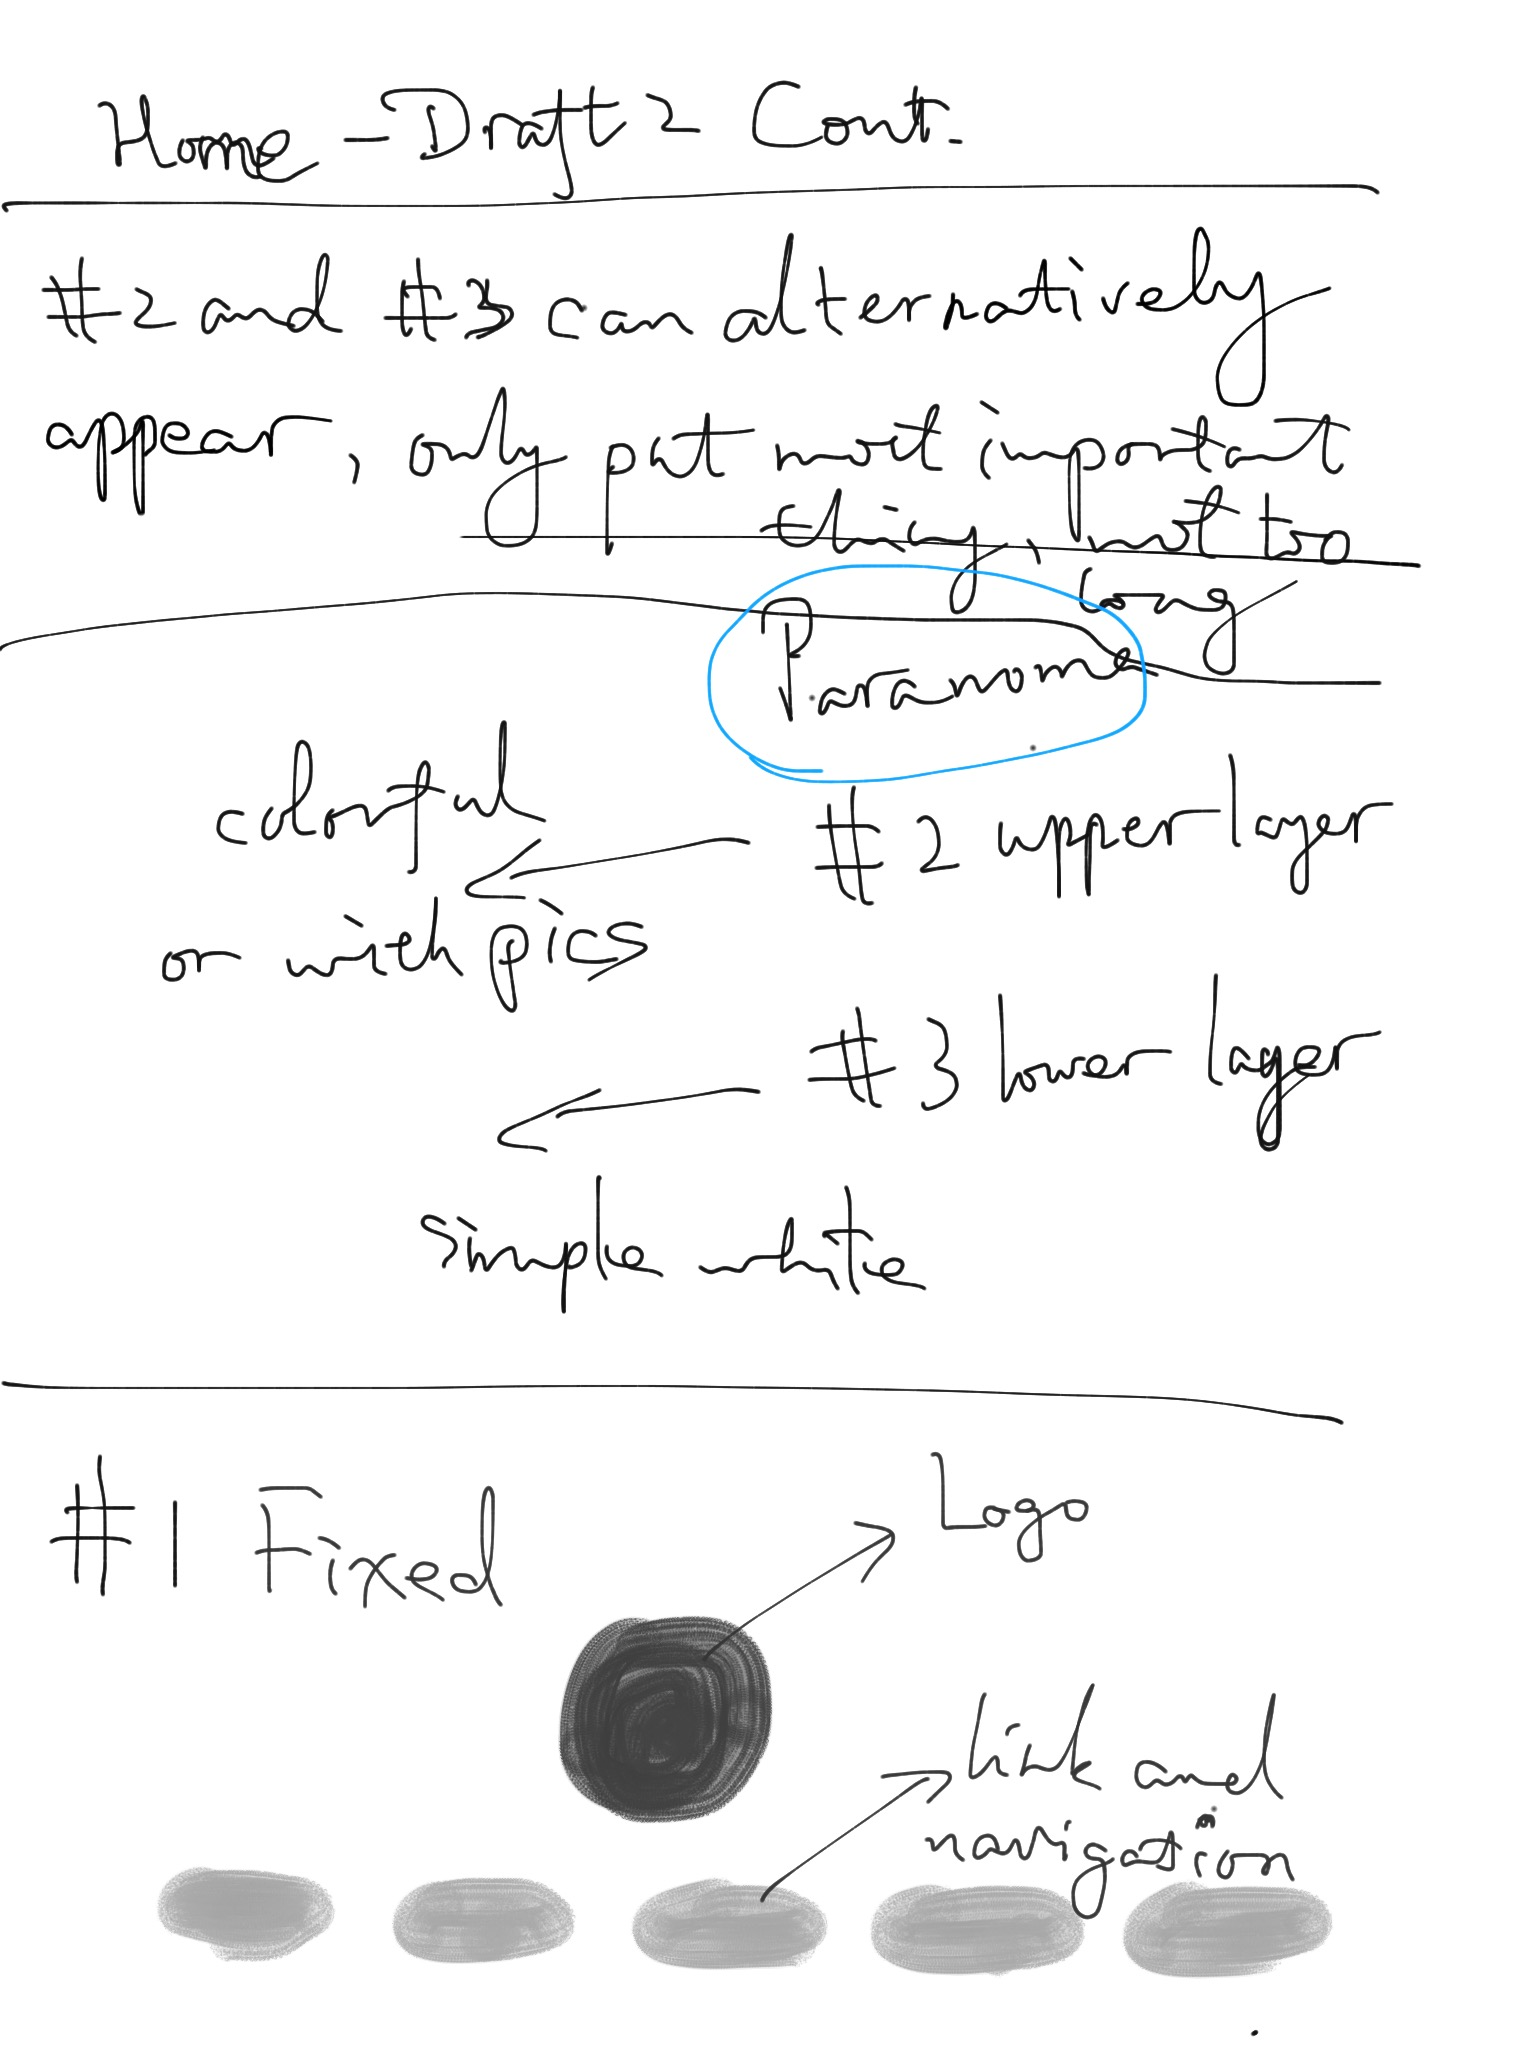 Home - Draft 2 Cont.
#2 and #3 can alternatively
appear, only put most important
thing, not too
long
Paranome
colorful
#2 upper layer
or with pics
#3 lower layer
simple white
#1 Fixed
Logo
link and
navigation